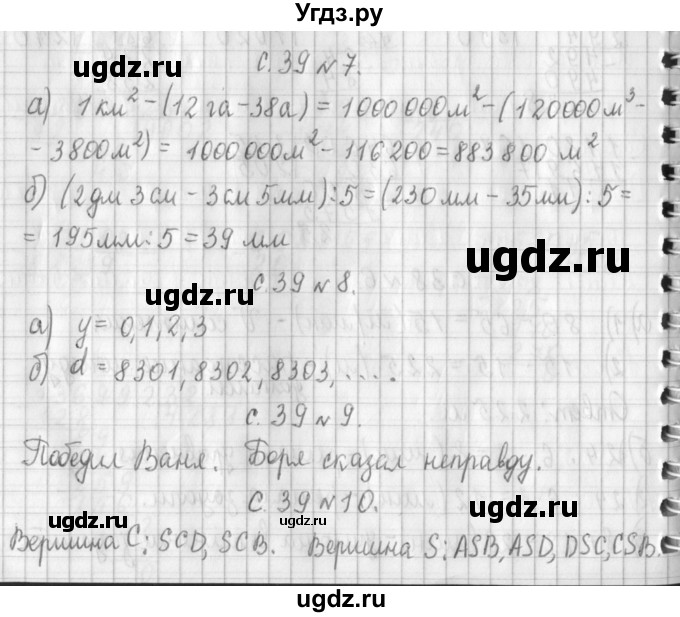 Угдз.ру
ugdz.ru
с. 39 № 7.
а) 1 км² - (12 га - 38 а) = 1000 000 м² - (120000 м³ -
- 3800 м²) = 1000 000 м² - 116 200 = 883 800 м²
б) (2 дм 3 см - 3 см 5 мм) : 5 = (230 мм - 35 мм) : 5 =
= 195 мм : 5 = 39 мм
ugdz.ru
с. 39 № 8.
ugdz.ru
а) y = 0, 1, 2, 3
б) d = 8301, 8302, 8303, ....
с. 39 № 9.
ugdz.ru
Победил Ваня. Боря сказал неправду.
с. 39 № 10.
ugdz.ru
ugdz.ru
ugdz.ru
Вершина С: SCD, SCB. Вершина S: ASB, ASD, DSC, CSB.
ugdz.ru